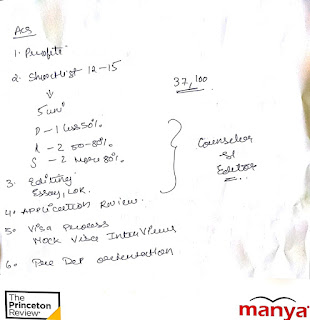 ACS
1. Profile
2. Shortlist 12-15
37,100
↓
5 uni
D - 1 less 50%
A - 2 50-80%
S - 2 more 80%
Counselor
Editor
3. Editing
Essay, LOR.
4. Application Review.
5. Visa Process
Mock Visa Interviews
6. Pre Dep orientation
The
Princeton
Review
manya